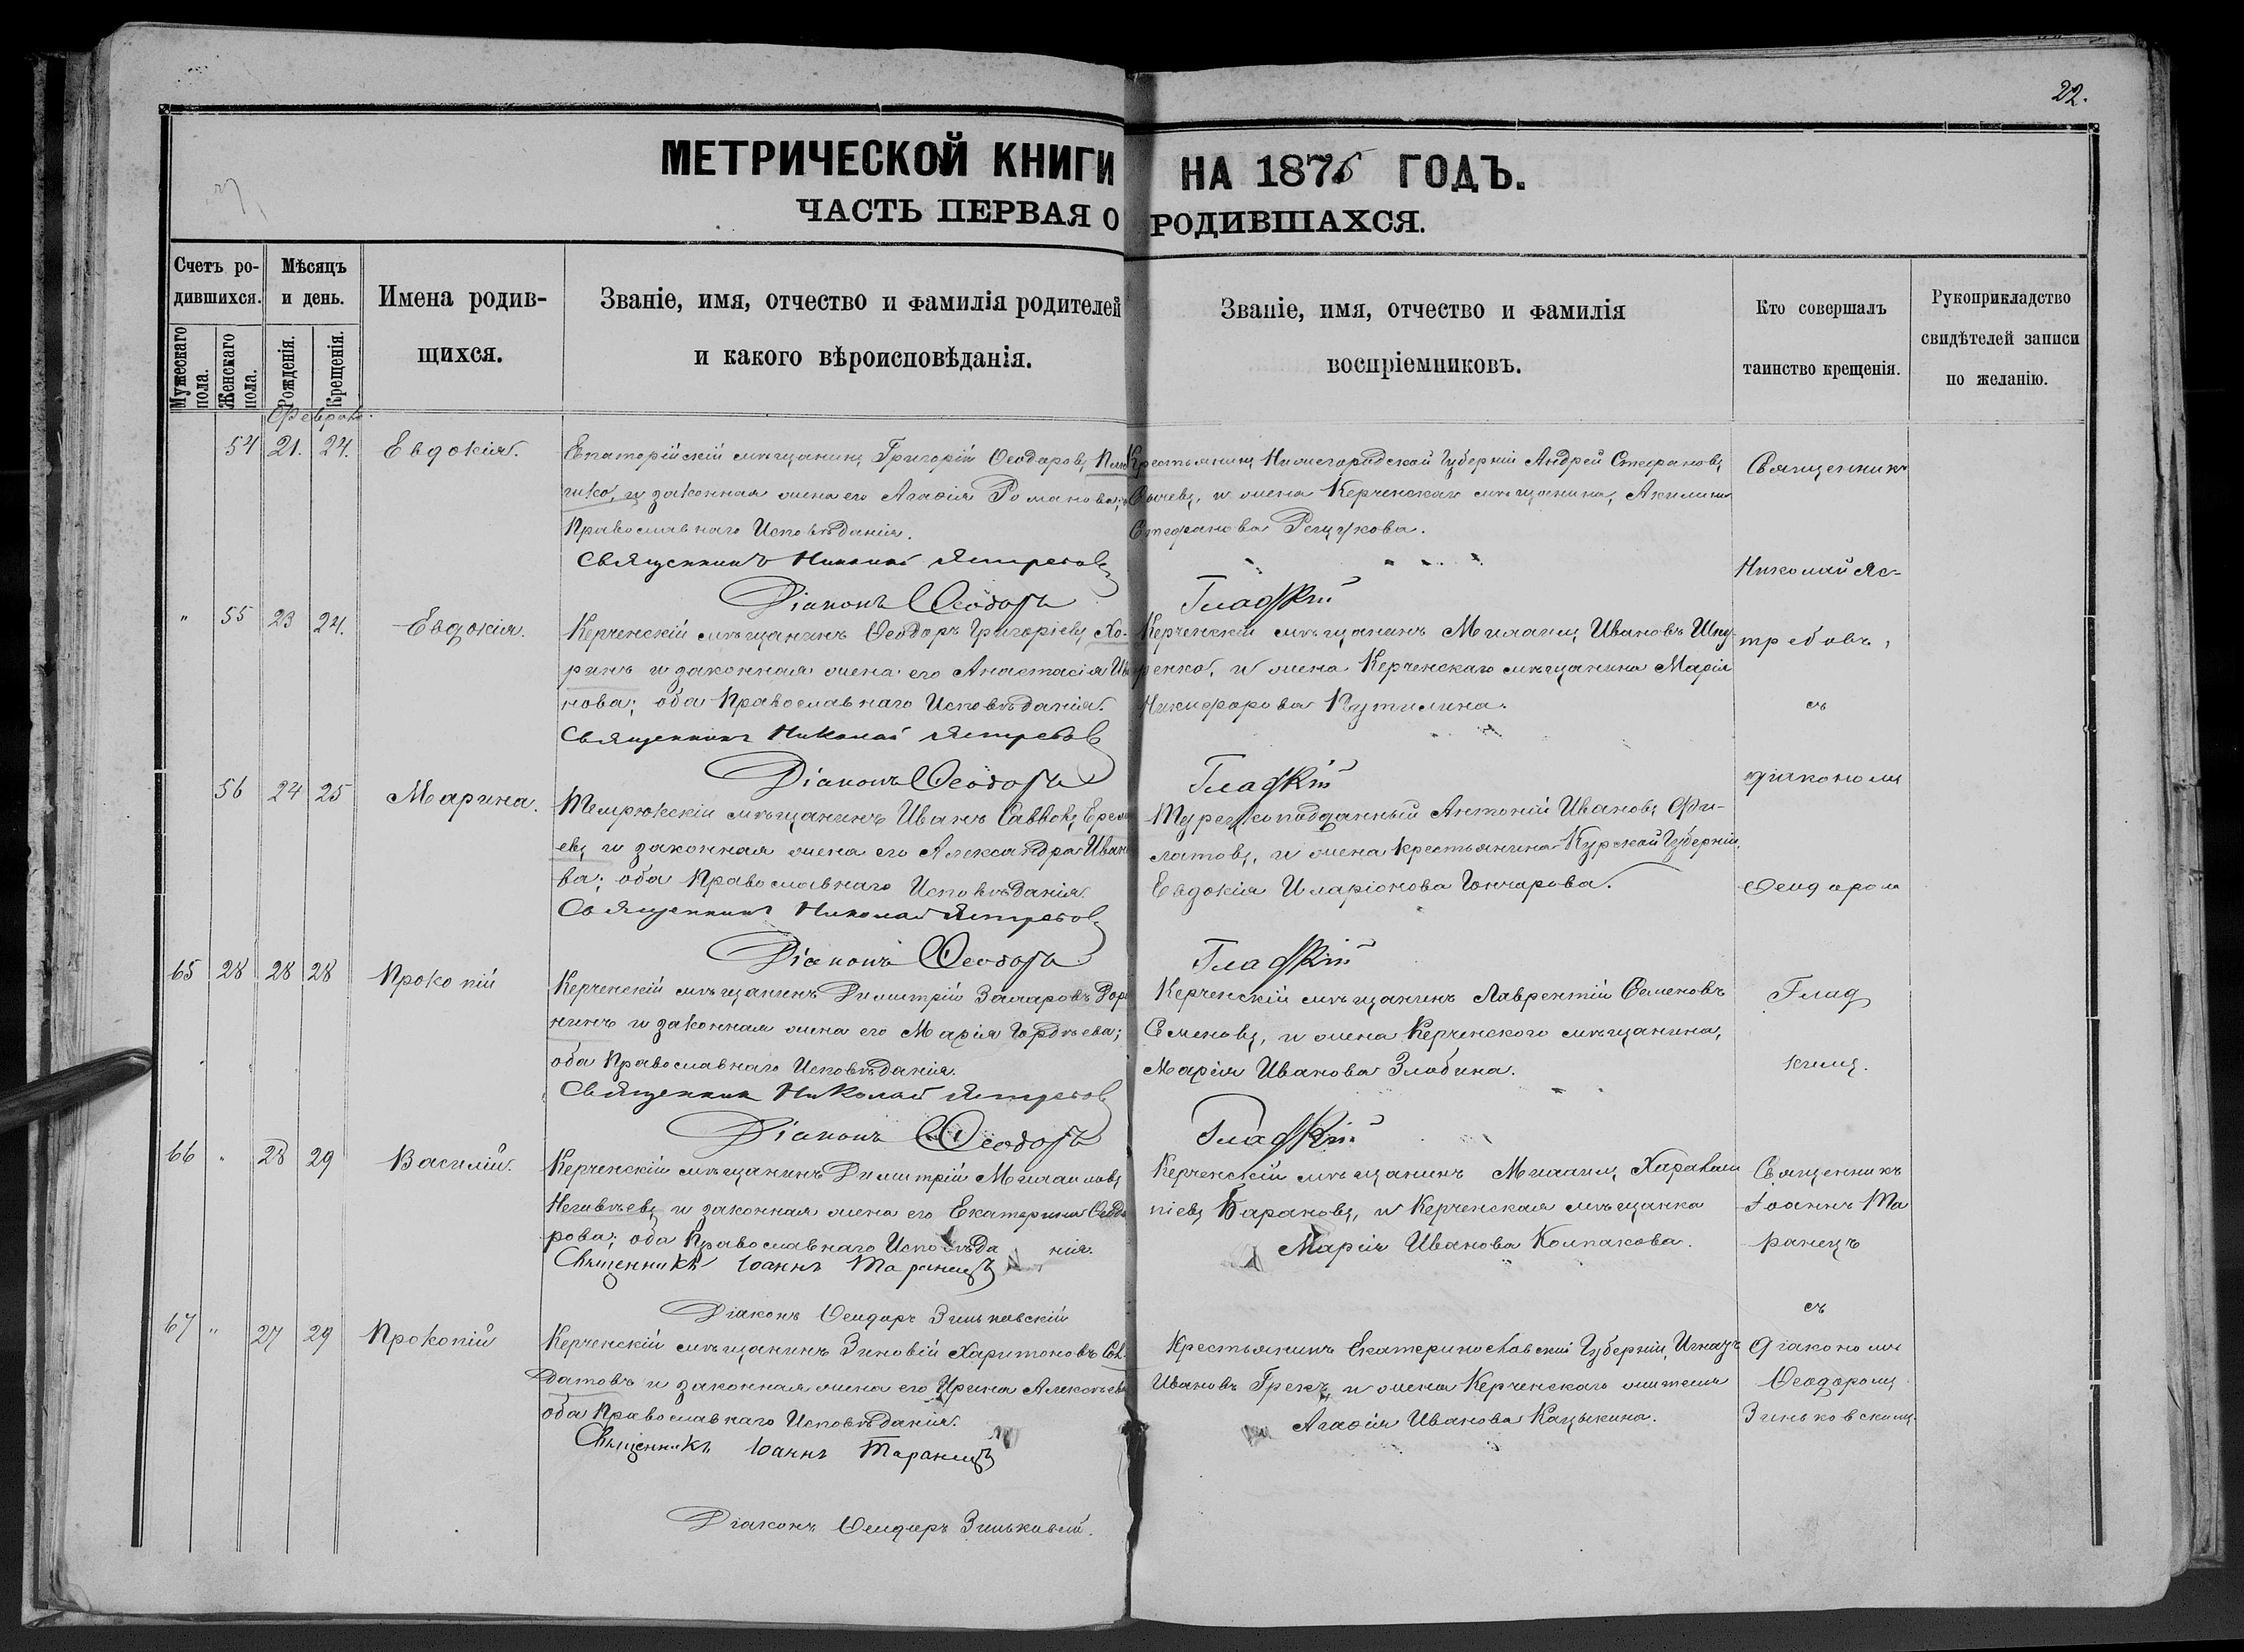 22.
МЕТРИЧЕСКОЙ КНИГИ НА 1876 ГОДЪ.
ЧАСТЬ ПЕРВАЯ О РОДИВШАХСЯ.
Счетъ ро-
дившихся.
Мужескаго пола.
Женскаго пола.
Мѣсяцъ
и день.
Рожденія.
Крещенія.
Имена родив-
щихся.
Званіе, имя, отчество и фамилія родителей
и какого вѣроисповѣданія.
Званіе, имя, отчество и фамилія
воспріемниковъ.
Кто совершалъ
таинство крещенія.
Рукоприкладство
свидѣтелей записи
по желанію.
Февраль.
54 21. 24. Евдокія.
Евпаторійскій мѣщанинъ Григорій Ѳеодоровъ
и законная жена его Агафія Романова;
Православнаго Исповѣданія.
Священникъ Николай Ястребовъ
Діаконъ Ѳеодоръ Гладкій
Крестьянинъ Нижегородской Губерніи Андрей Стефановъ
и жена Керченскаго мѣщанина, Акилина
Стефанова
Священникъ
Николай Яс-
" 55 23 24. Евдокія.
Керченскій мѣщанинъ Ѳеодоръ Григоріевъ Хо-
ринъ и законная жена его Анастасія Ива
нова; оба Православнаго Исповѣданія.
Священникъ Николай Ястребовъ
Діаконъ Ѳеодоръ Гладкій
Керченскій мѣщанинъ Михаилъ Ивановъ Шпу
ренко, и жена Керченскаго мѣщанина Марія
Никифорова Путилина.
требовъ,
съ
56 24 25 Марина.
Темрюкскій мѣщанинъ Иванъ Саввовъ Ерем
евъ и законная жена его Александра Ивано
ва; оба Православнаго Исповѣданія.
Священникъ Николай Ястребовъ
Діаконъ Ѳеодоръ Гладкій
Турецкоподданный Антоній Ивановъ Фи-
латовъ, и жена крестьянина Курской Губерніи,
Евдокія Иларіонова Гончарова.
діакономъ
Ѳеодоромъ
65 28 28 28 Прокопій
Керченскій мѣщанинъ Димитрій Захаровъ
нинъ и законная жена его Марія Гордѣева;
оба Православнаго Исповѣданія.
Священникъ Николай Ястребовъ
Діаконъ Ѳеодоръ Гладкій
Керченскій мѣщанинъ Лаврентій Семеновъ
Семеновъ, и жена Керченского мѣщанина,
Марія Иванова Злобина.
Глад
кимъ.
66 " 28 29 Василій.
Керченскій мѣщанинъ Димитрій Михаиловъ
и законная жена его Екатерина Ѳеодо
рова; оба Православнаго Исповѣданія.
Священникъ Іоаннъ Таранецъ
Діаконъ Ѳеодоръ Зиньковскій
Керченскій мѣщанинъ Михаилъ Харалам
піевъ Барановъ, и Керченская мѣщанка
Марія Иванова Колпакова.
Священникъ
Іоаннъ Та
ранецъ
съ
67 " 27 29 Прокопій
Керченскій мѣщанинъ Зиновій Харитоновъ Сол-
датовъ и законная жена его Ирина Алексѣева
оба Православнаго Исповѣданія.
Священникъ Іоаннъ Таранецъ
Діаконъ Ѳеодоръ Зиньковскій.
Крестьянинъ Екатеринославской Губерніи, Игнатъ
Ивановъ Грекъ и жена Керченскаго жителя
Агафія Иванова Кацыкина.
діакономъ
Ѳеодоромъ
Зиньковскимъ.